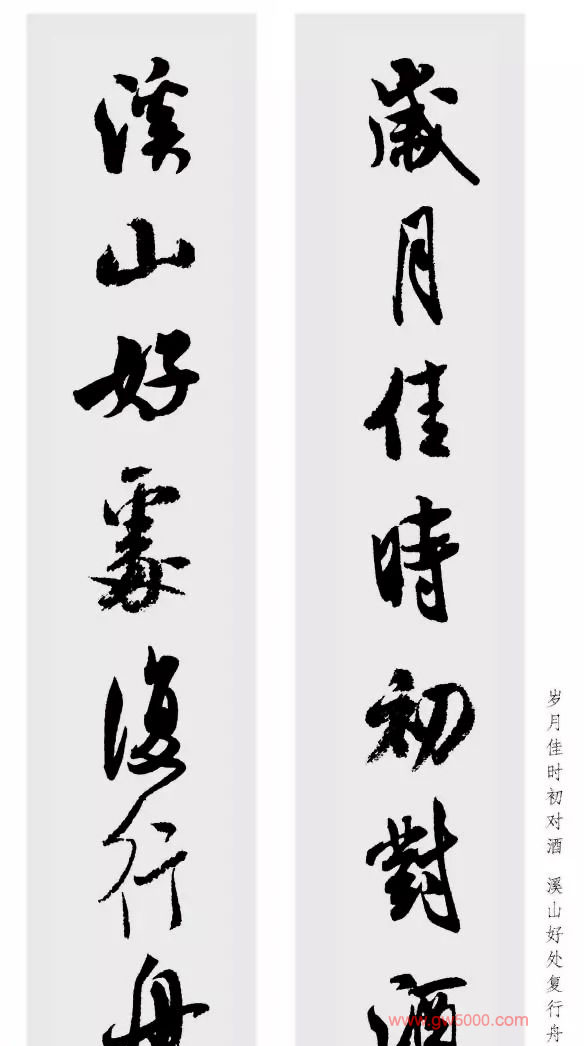 歲月佳時初對酒
溪山好處復行舟
岁月佳时初对酒 溪山好处复行舟
www.gw5000.com